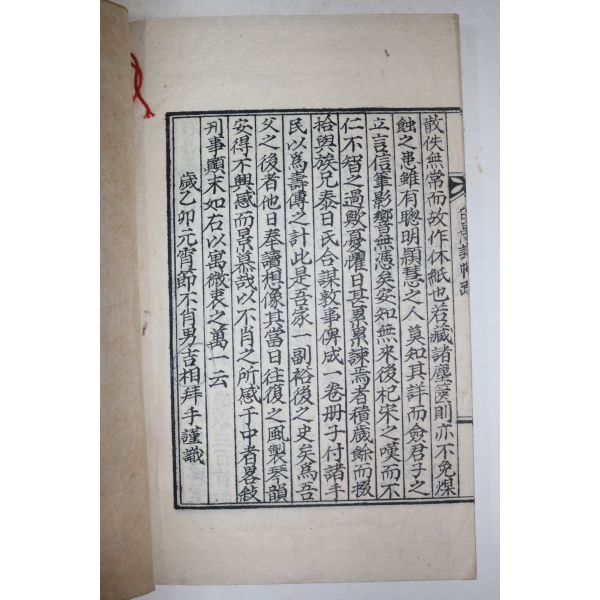 散佚無常而故作休紙也若藏諸塵篋則亦不免煤
蝕之患雖有聰明穎慧之人莫知其詳而僉君子之
立言信筆影響無憑矣安知無來後杞宋之嘆而不
仁不智之過歟憂懼日甚累累諫焉者積歲餘而掇
拾與族兄泰日氏合謀敦事俾成一卷册子付諸手
民以爲壽傳之計此是吾家一副裕後之史矣爲吾
父之後者他日奉讀想像其當日往復之風製琴韻
安得不興感而景慕哉以不肖之所感于中者畧敍
刋事顚末如右以寓微衷之萬一云
歲乙卯元宵節不肖男吉相拜手謹識